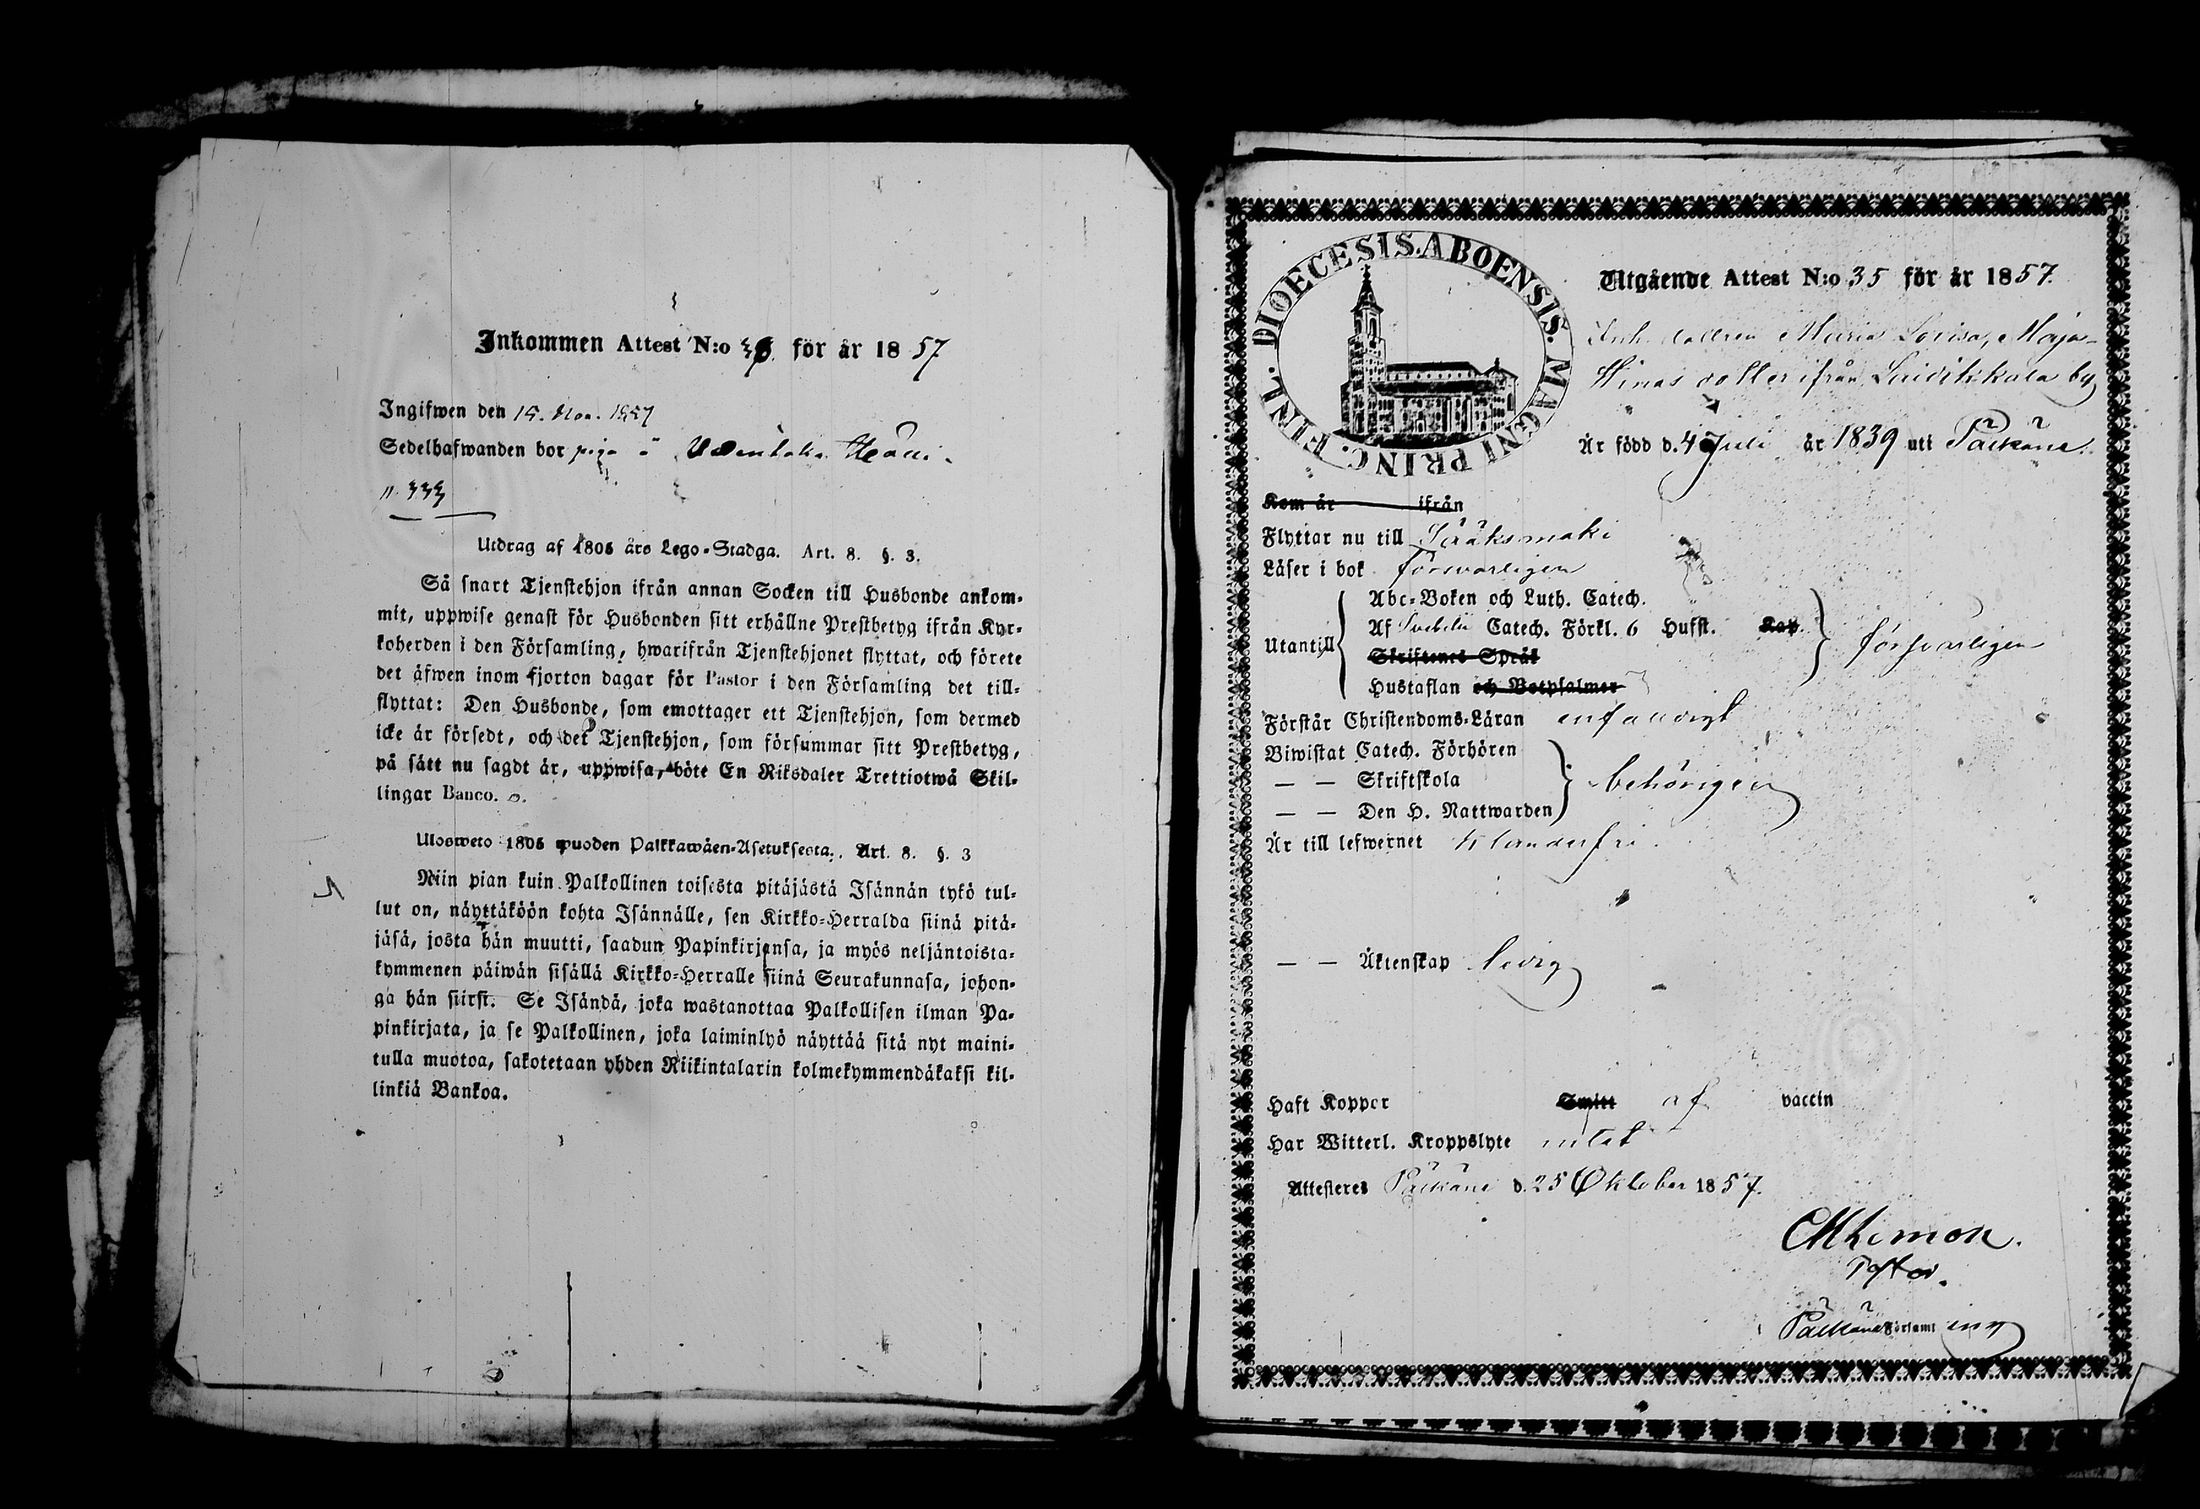 Inkommen Attest N:o för år 1857
Ingifwen den 15. Nov. 1857
Sedelhafwanden bor piga å
p. 333
Utdrag af 1805 års Lego-Stadga. Art. 8. §. 3.
Så snart Tjenstehjon ifrån annan Socken till Husbonde ankom-
mit, uppwise genast för Husbonden sitt erhållne Prestbetyg ifrån Kyr-
koherden i den Församling, hwarifrån Tjenstehjonet flyttat, och förete
det äfwen inom fjorton dagar för Pastor i den Församling det till-
flyttat: Den Husbonde, som emottager ett Tjenstehjon, som dermed
icke är försedt, och det Tjenstehjon, som försummar sitt Prestbetyg,
på sätt nu sagdt är, uppwisa, böte En Riksdaler Trettiotwå Skil-
lingar Banco.
Ulosweto 1805 wuoden Palkkawäen-Asetuksesta. Art. 8. §. 3
Niin pian kuin Palkollinen toisesta pitäjästä Isännän tykö tul-
lut on, näyttäköön kohta Isännälle, sen Kirkko-Herralda siinä pitä-
jäsä, josta hän muutti, saadun Papinkirjansa, ja myös neljäntoista-
kymmenen päiwän sisällä Kirkko-Herralle siinä Seurakunnasa, johon-
ga hän siirsi. Se Isändä, joka wastanottaa Palkollisen ilman Pa-
pinkirjata, ja se Palkollinen, joka laiminlyö näyttää sitä nyt maini-
tulla muotoa, sakotetaan yhden Riikintalarin kolmekymmendäkaksi kil-
linkiä Bankoa.
DIOECESIS. ABOENSIS. MAGNI PRINC. FINL.
Utgående Attest N:o 35 för år 1857.
Inh. dottren Maria Lovisa, Maja-
dotter ifrån Laitikkala by
Är född d. 4 Juli år 1839 uti Pälkäne.
Kom år ifrån
Flyttar nu till Sääksmäki
Läser i bok försvarligen
Abc-Boken och Luth. Catech.
Utantill Af Svebelii Catech. Förkl. 6 Hufst. Kap. försvarligen
Skriftenes Språk
Hustaflan och Botpsalmer
Förstår Christendoms-Läran enfaldigt
Biwistat Catech. Förhören
— — Skriftskola behörigen
— — Den H. Nattwarden
Är till lefwernet klanderfri.
— — Äktenskap ledig
Haft Koppor Smitt af vaccin
Har Witterl. Kroppslyte intet
Attesteres Pälkäne d. 25 Oktober 1857.
Pastor.
Pälkäne Församling